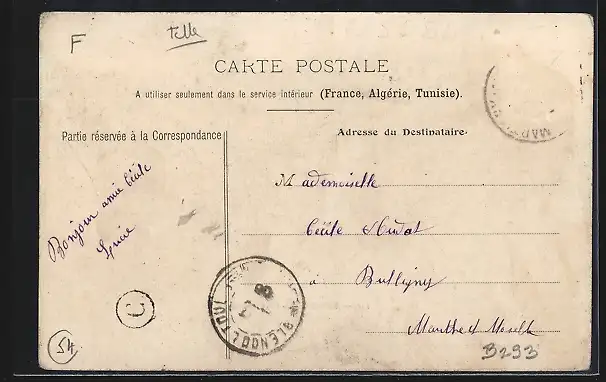 F
CARTE POSTALE
A utiliser seulement dans le service intérieur (France, Algérie, Tunisie).
Partie réservée à la Correspondance
Adresse du Destinataire
Bonjour amie Cécile
Lucie
Mademoiselle
Cécile
à Bulligny
Meurthe et Moselle
C
54
B293
BLENOD
TOUL